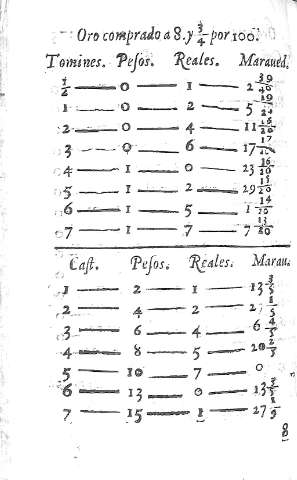 Oro comprado a 8. y 3/4 por 100.
Tomines. Peſos. Reales. Maraued.
1/2 — 0 — 1 — 2 39/40
1 — 0 — 2 — 5 19/20
2 — 0 — 4 — 11 18/20
3 — 0 — 6 — 17 17/20
4 — 1 — 0 — 23 16/20
5 — 1 — 2 — 29 15/20
6 — 1 — 5 — 1 14/20
7 — 1 — 7 — 7 13/20
Caſt. Peſos. Reales. Marau.
1 — 2 — 1 — 13 3/5
2 — 4 — 2 — 27 1/5
3 — 6 — 4 — 6 4/5
4 — 8 — 5 — 20 2/5
5 — 10 — 7 — 0
6 — 13 — 0 — 13 3/5
7 — 15 — 1 — 27 1/5
8